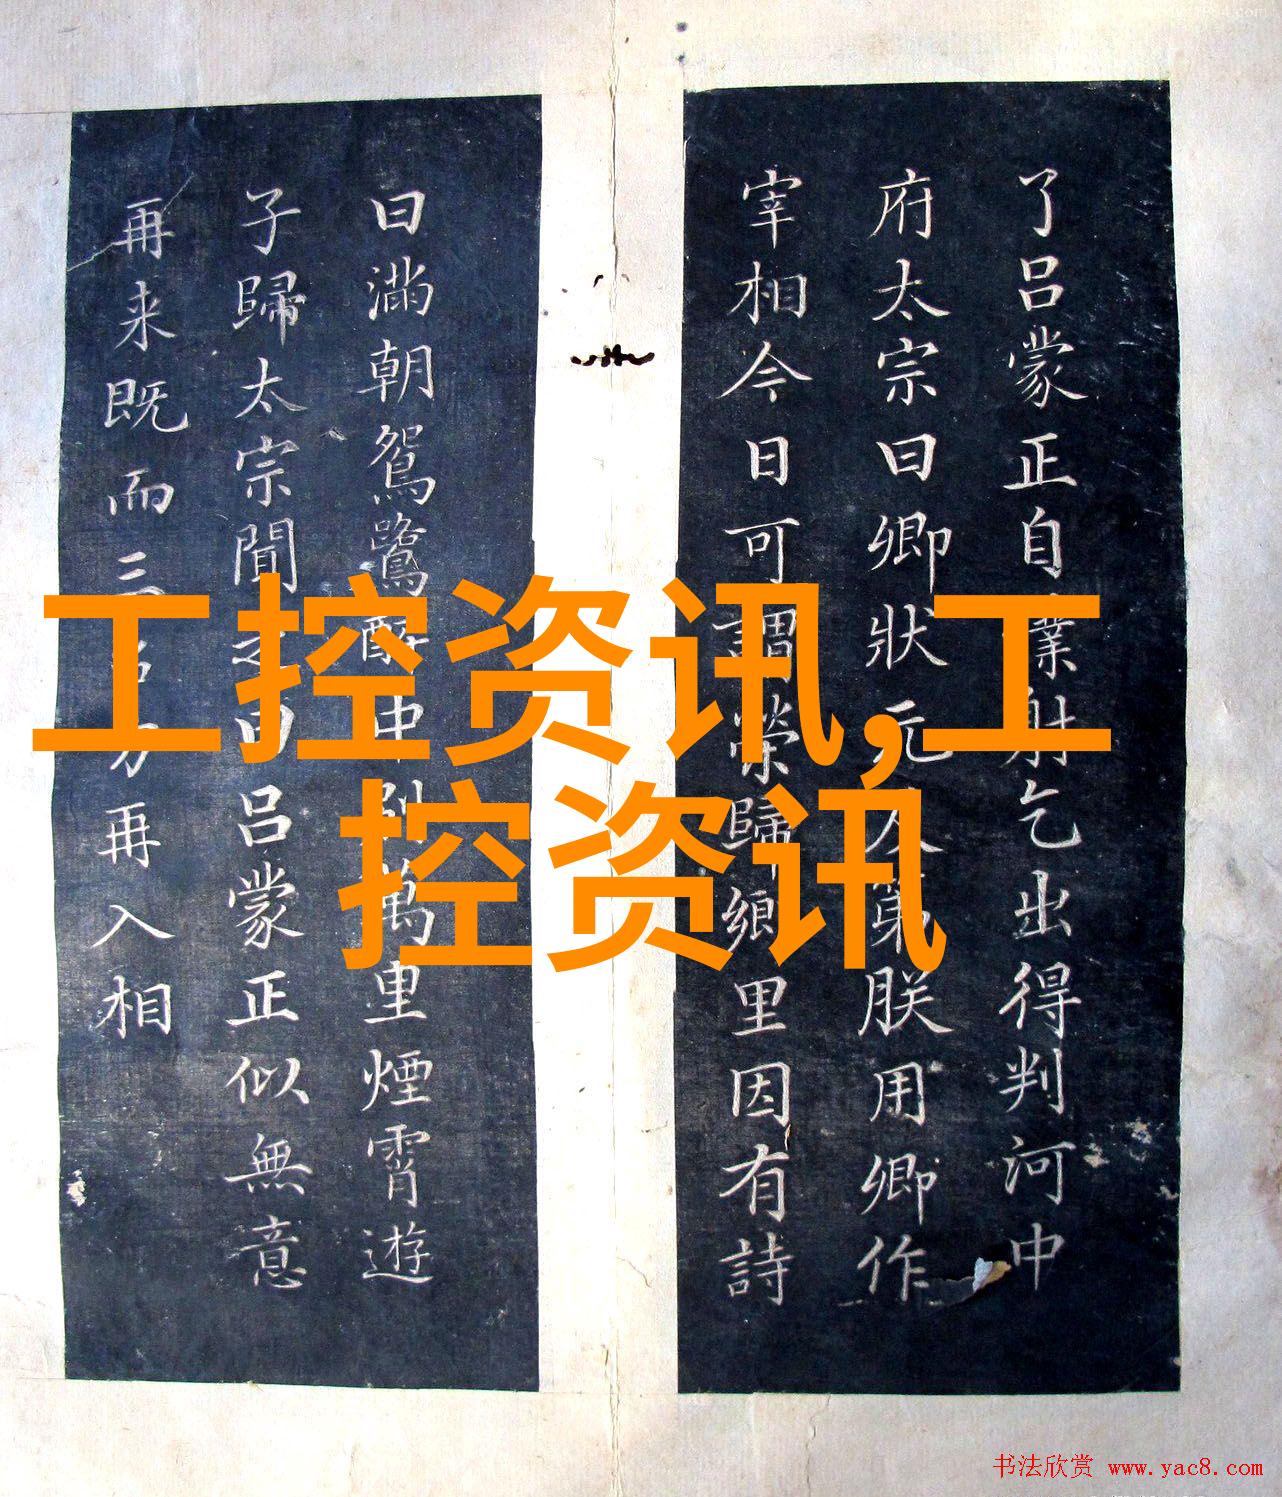 了呂蒙正自僕射乞出得判河中
府太宗曰卿狀元及第朕用卿作
宰相今日可謂榮歸鄉里因有詩
曰滿朝鴛鷺醉中別萬里煙霄遊
子歸太宗聞之曰呂蒙正似無意
再来既而三方再入相
工控资讯,工
控资讯
书法欣赏 www.yac8.com